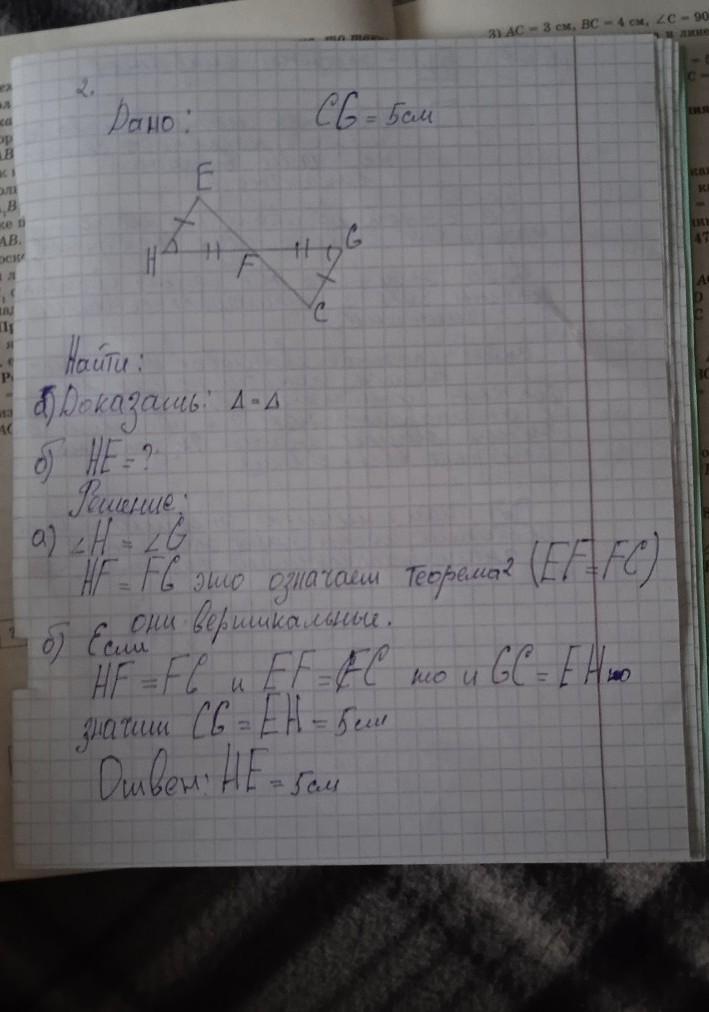 3) AC = 3 см, BC = 4 см, ∠C = 90
2.
Дано: CG = 5см
E
H F G
C
Найти:
а) Доказать: Δ = Δ
б) HE = ?
Решение:
а) ∠H = ∠G
HF = FG это означает теорема 2 (EF = FC)
они вертикальные.
б) Если
HF = FG и EF = FC то и GC = EH то
значит CG = EH = 5см
Ответ: HE = 5см